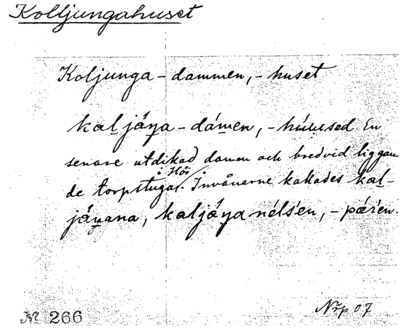 Kolljungahuset
Koljunga-dammen, -huset
kaljáŋa-dámen, -húused En
senare utdikad damm och bredvid liggan
de torpstugar. Hör Invånarne kallades kal-
jáŋana, kaljáŋa nélsen, -pæ̂ren.
№ 266
Nrp 07